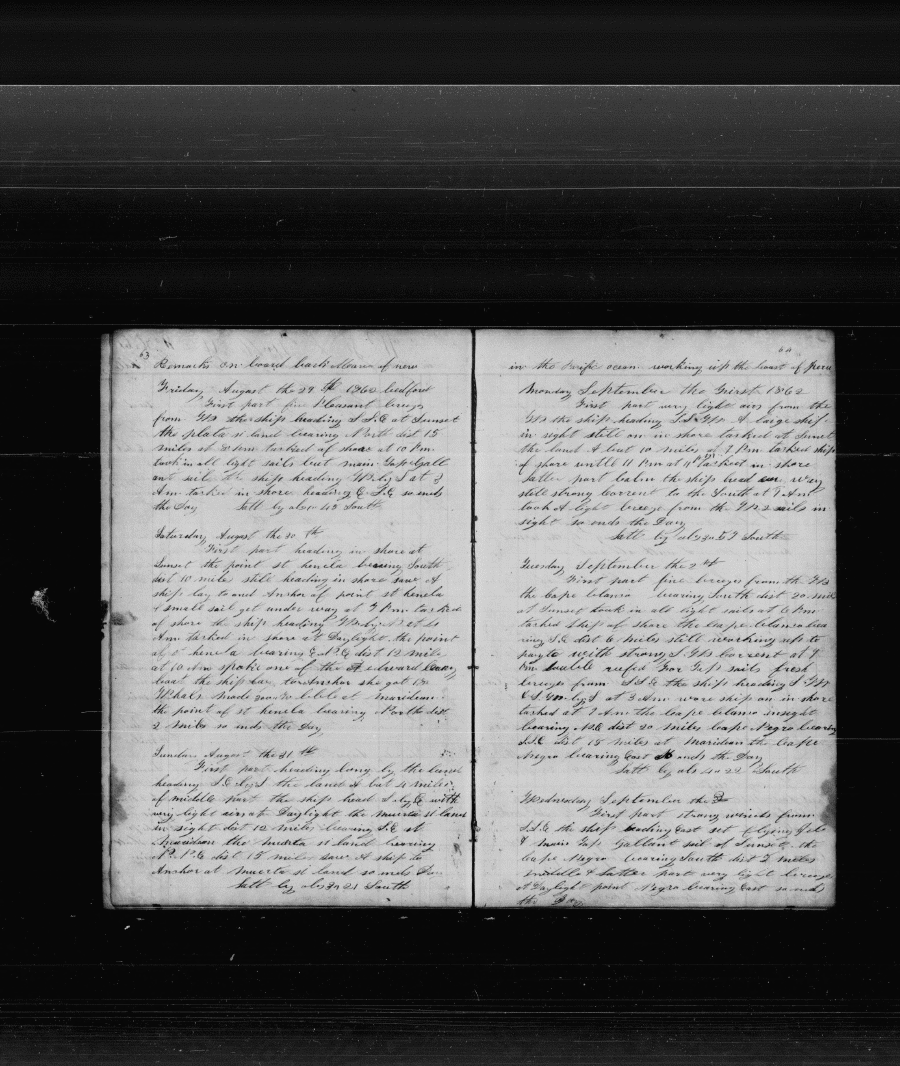 63
Remarks on board bark of new
Friday August the 29 th 1862 bedford
First part fine Pleasant breeze
from the ship heading S S.E at Sunset
the plata island bearing North dist 15
miles at 8 Pm tacked of shore at 10 Pm
took in all light sails but main Top Gall
ant sail the ship heading W by S at 3
Am tacked in shore heading E S.E so ends
the Day Latt by obs 1 43 South
Saturday August the 30 th
First part heading in shore at
Sunset the point st henela bearing South
dist 10 mile still heading in shore saw A
ship lay to and Anchor of point st henela
& small sail get under way at 7 Pm tacked
of shore the ship heading W by N at 2
Am tacked in shore at Daylight the point
of st henela bearing E.N.E dist 12 mile
at 10 Am spoke one of the edward
boat the ship lay to Anchor she got 1
Whale made bbls at meridian
the point of st henela bearing North dist
2 mile so ends the Day
Sunday August the 31 th
First part heading long by the land
heading S.E by S the land A bout 4 miles
of middle part the ship head S by E with
very light airs at Daylight the muerta island
in sight dist 12 miles bearing S.E at
Meridian the muerta island bearing
N.N.E dist 15 mile saw A ship to
Anchor at muerta island so ends Day
Latt by obs 3 21 South
64
in the Pacific ocean working up the coast of Peru
Monday September the First 1862
First part very light airs from the
the ship heading A large ship
in sight still on in shore tacked at Sunset
the land A bout 10 mile at 8 Pm tacked ship
of shore untill 11 Pm at 11 Pm tacked in shore
latter part calm the ship head every way
still strong current to the South at 9 Am
took A light breeze from the 2 sails in
sight so ends the Day
Latt by obs 3 57 South
Tuesday September the 2 th
First part fine breeze from the
the Cape blanco bearing South dist 20 mile
at Sunset took in all light sails at 6 Pm
tacked ship of shore the Cape blanco bea
ring S.E dist 6 miles still working up to
payta with strong current at 9
Pm double reefed Fore Top sails fresh
breeze from S.S.E the ship heading
& E by S at 3 Am wore ship on in shore
tacked at 7 Am the Cape blanco insight
bearing N.E dist 20 miles Cape Negro bearing
S.E dist 15 miles at Meridian the Cape
Negro bearing East So ends the Day
Latt by obs 4 22 South
Wednesday September the 3
First part strong winds from
S.S.E the ship heading East set flying Jib
& main Top Gallant sail at Sunset the
Cape Negro bearing South dist 5 miles
middle & latter part very light breeze
at Daylight point Negro bearing East so ends
the Day